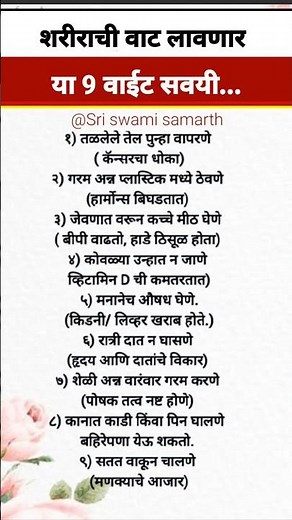 शरीराची वाट लावणार
या 9 वाईट सवयी...
@Sri swami samarth
१) तळलेले तेल पुन्हा वापरणे
( कॅन्सरचा धोका)
२) गरम अन्न प्लास्टिक मध्ये ठेवणे
(हार्मोन्स बिघडतात)
३) जेवणात वरून कच्चे मीठ घेणे
( बीपी वाढतो, हाडे ठिसूळ होता)
४) कोवळ्या उन्हात न जाणे
व्हिटामिन D ची कमतरतात)
५) मनानेच औषध घेणे.
(किडनी/ लिव्हर खराब होते.)
६) रात्री दात न घासणे
(हृदय आणि दातांचे विकार)
७) शेळी अन्न वारंवार गरम करणे
(पोषक तत्व नष्ट होणे)
८) कानात काडी किंवा पिन घालणे
बहिरेपणा येऊ शकतो.
९) सतत वाकून चालणे
(मणक्याचे आजार)